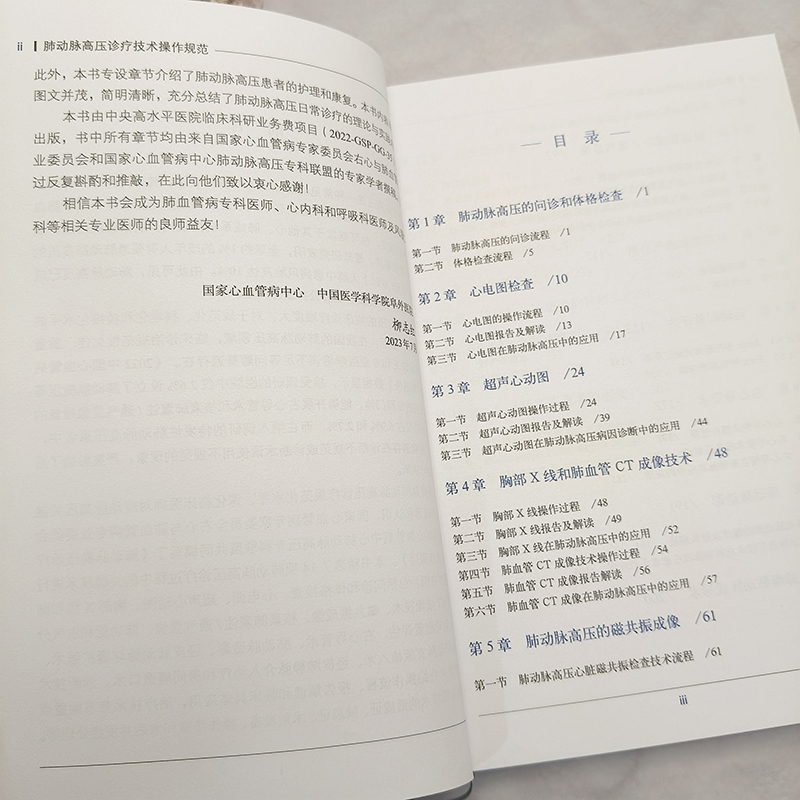 ii 肺动脉高压诊疗技术操作规范
此外，本书专设章节介绍了肺动脉高压患者的护理和康复。本书内容
图文并茂，简明清晰，充分总结了肺动脉高压日常诊疗的理论与实践
本书由中央高水平医院临床科研业务费项目（2022-GSP-GG-35
出版，书中所有章节均由来自国家心血管病专家委员会右心与肺血管
业委员会和国家心血管病中心肺动脉高压专科联盟的专家学者撰稿
过反复斟酌和推敲，在此向他们致以衷心感谢！
相信本书会成为肺血管病专科医师、心内科和呼吸科医师及风
科等相关专业医师的良师益友！
国家心血管病中心 中国医学科学院阜外医院
柳志红
2023年7月
目录
第1章 肺动脉高压的问诊和体格检查 /1
第一节 肺动脉高压的问诊流程 /1
第二节 体格检查流程 /5
第2章 心电图检查 /10
第一节 心电图的操作流程 /10
第二节 心电图报告及解读 /13
第三节 心电图在肺动脉高压中的应用 /17
第3章 超声心动图 /24
第一节 超声心动图操作过程 /24
第二节 超声心动图报告及解读 /39
第三节 超声心动图在肺动脉高压病因诊断中的应用 /44
第4章 胸部X线和肺血管CT成像技术 /48
第一节 胸部X线操作过程 /48
第二节 胸部X线报告及解读 /49
第三节 胸部X线在肺动脉高压中的应用 /52
第四节 肺血管CT成像技术操作过程 /54
第五节 肺血管CT成像报告解读 /56
第六节 肺血管CT成像在肺动脉高压中的应用 /57
第5章 肺动脉高压的磁共振成像 /61
第一节 肺动脉高压心脏磁共振检查技术流程 /61
iii